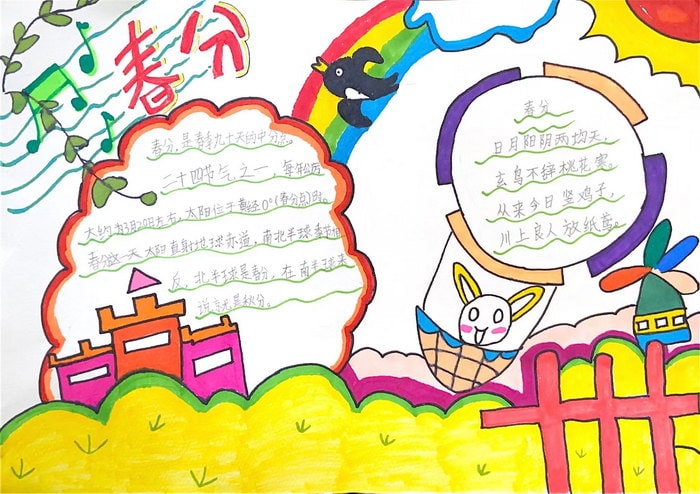 春分
春分,是春季九十天的中分点。
二十四节气之一,每年公历
大约为3月20日左右,太阳位于黄经0°(春分点)时。
春分这一天太阳直射地球赤道,南北半球季节相
反,北半球是春分,在南半球来
说就是秋分。
春分
日月阳阴两均天,
玄鸟不辞桃花寒。
从来今日竖鸡子,
川上良人放纸鸢。